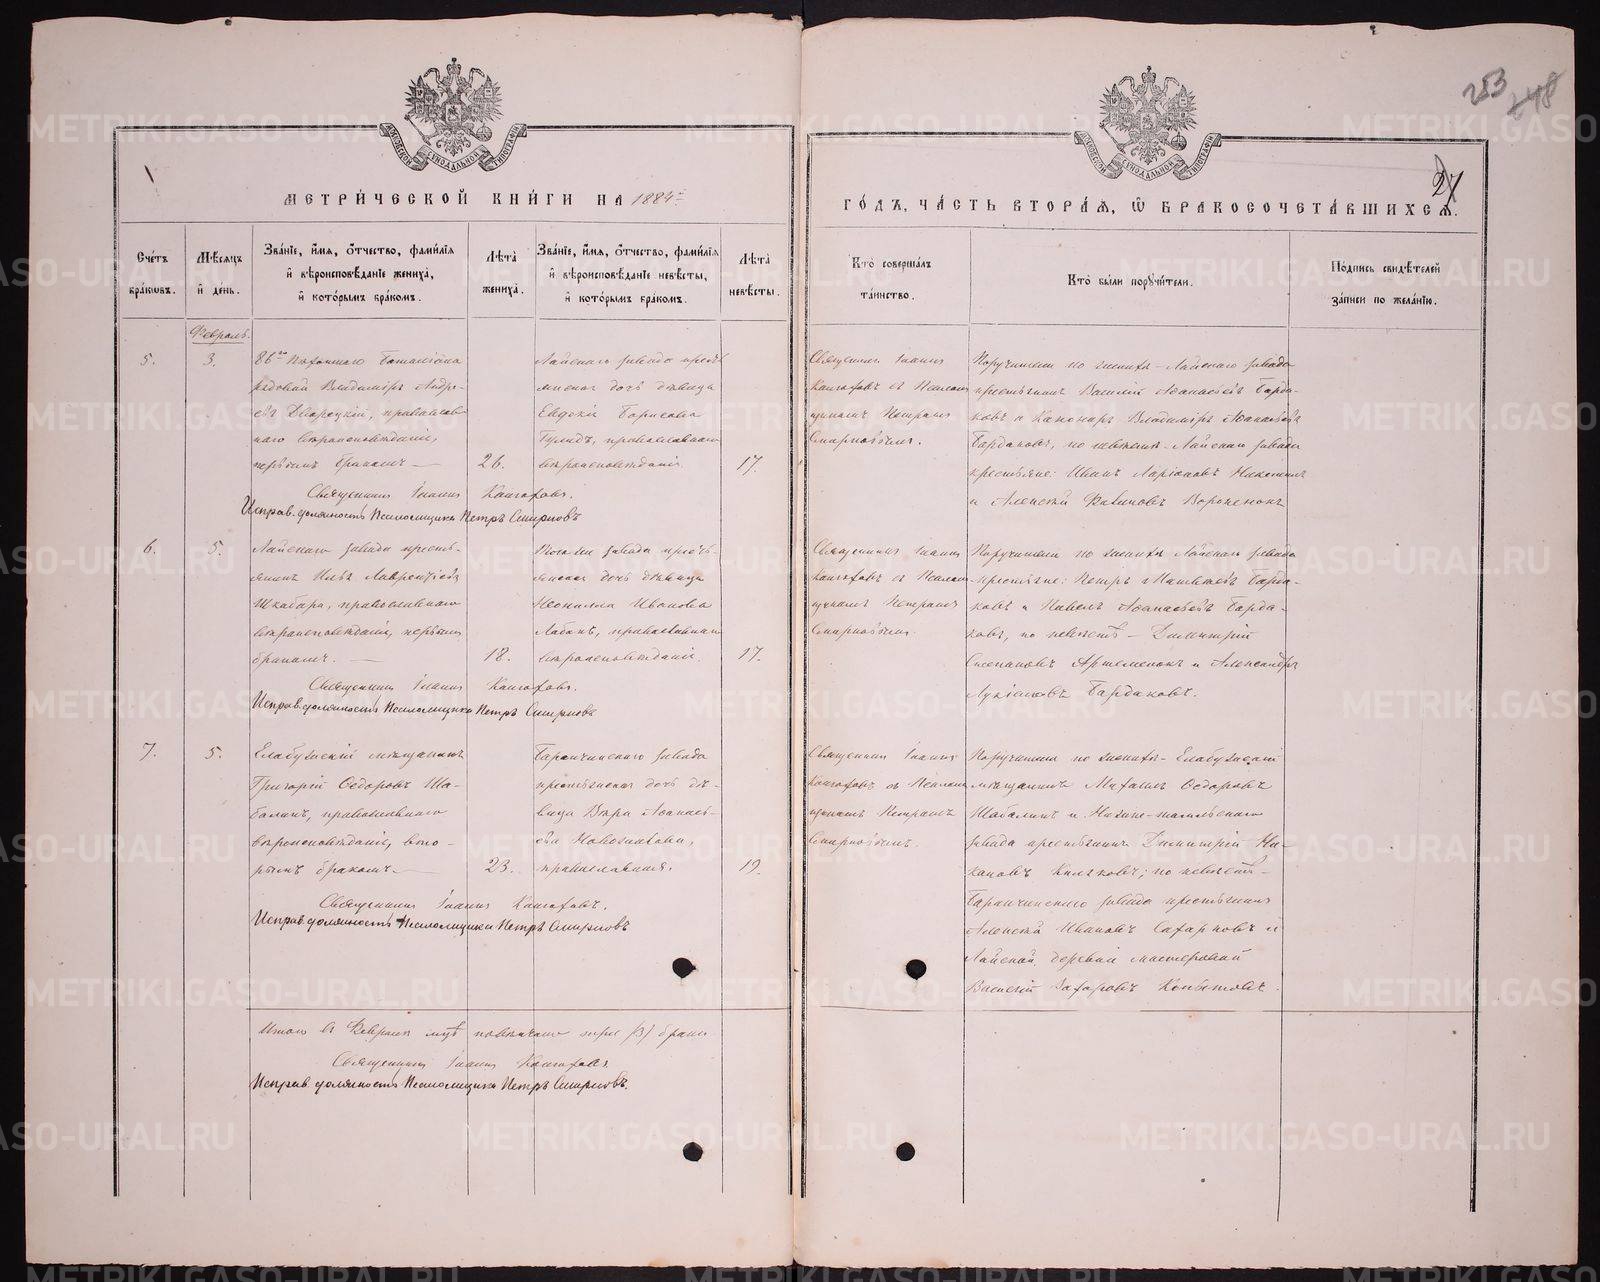 253 248
27
МОСКОВСКОЙ СѴНОДАЛЬНОЙ ТИПОГРАФІИ
МОСКОВСКОЙ СѴНОДАЛЬНОЙ ТИПОГРАФІИ
МЕТРИ́ЧЕСКОЙ КНИ́ГИ НА 1884й
ГО́ДЪ, ЧА́СТЬ ВТОРА́Я, Ѡ БРАКОСОЧЕТА́ВШИХСЯ.
Сче́тъ бра́кѡвъ.
Мѣ́сяцъ и̂ де́нь.
Зва́нїе, и̂́мя, ѻ̂́тчество, фами́лїя и̂ вѣроисповѣ́данїе жениха̀, и̂ кото́рымъ бра́комъ.
Лѣ́та жениха̀.
Зва́нїе, и̂́мя, ѻ̂́тчество, фами́лїя и̂ вѣроисповѣ́данїе невѣ́сты, и̂ кото́рымъ бра́комъ.
Лѣ́та невѣ́сты.
Кто̀ соверша́лъ та́инство.
Кто̀ бы́ли порꙋчи́тели.
По́дпись свидѣ́телей за́писи по жела́нїю.
Февраль.
5.
3.
86го Пѣхотнаго Баталіона
рядовой Владиміръ Андре-
евъ Дворецкій, православ-
наго вѣроисповѣданія,
первымъ бракомъ —
26.
Лайскаго завода кресть-
янская дочь дѣвица
Евдокія Борисова
православнаго
вѣроисповѣданія.
17.
Священникъ Іоаннъ
съ Псалом-
щикомъ Петромъ
Смирновымъ.
Поручители по женихѣ – Лайскаго завода
крестьянинъ Василій Аѳанасьевъ Барда-
ковъ и Владиміръ Аѳанасьевъ
Бардаковъ, по невѣстѣ – Лайскаго завода
крестьяне: Иванъ Ларіоновъ
и Алексѣй
Священникъ Іоаннъ
Исправ. должность Псаломщика Петръ Смирновъ
6.
5.
Лайскаго завода кресть-
янинъ Илья Лаврентіевъ
Шкабара, православнаго
вѣроисповѣданія, первымъ
бракомъ. —
18.
Того же завода кресть-
янская дочь дѣвица
Неонилла Иванова
православнаго
вѣроисповѣданія.
17.
Священникъ Іоаннъ
съ Псалом-
щикомъ Петромъ
Смирновымъ.
Поручители по женихѣ Лайскаго завода
крестьяне: Петръ Матвѣевъ Барда-
ковъ и Павелъ Аѳанасьевъ Барда-
ковъ, по невѣстѣ – Димитрій
Степановъ Артеменокъ и Александръ
Лукіановъ Бардаковъ.
Священникъ Іоаннъ
Исправ. должность Псаломщика Петръ Смирновъ
7.
5.
Елабужскій мѣщанинъ
Григорій Ѳедоровъ Ша-
балинъ, православнаго
вѣроисповѣданія, вто-
рымъ бракомъ. —
23.
Баранчинскаго завода
крестьянская дочь дѣ-
вица Вѣра Аѳанась-
ева Новожилова,
православная.
19.
Священникъ Іоаннъ
съ Псалом-
щикомъ Петромъ
Смирновымъ.
Поручители по женихѣ – Елабужскій
мѣщанинъ Михаилъ Ѳедоровъ
Шабалинъ и Нижне-тагильскаго
завода крестьянинъ Димитрій Ни-
кановъ; по невѣстѣ –
Баранчинскаго завода крестьянинъ
Алексѣй Ивановъ и
Лайской деревни мастеровой
Василій Захаровъ Копытовъ.
Священникъ Іоаннъ
Исправ. должность Псаломщика Петръ Смирновъ
Итого въ Февралѣ мцѣ повѣнчано три /3/ брака
Священникъ Іоаннъ
Исправ. должность Псаломщика Петръ Смирновъ.
METRIKI.GASO-URAL.RU